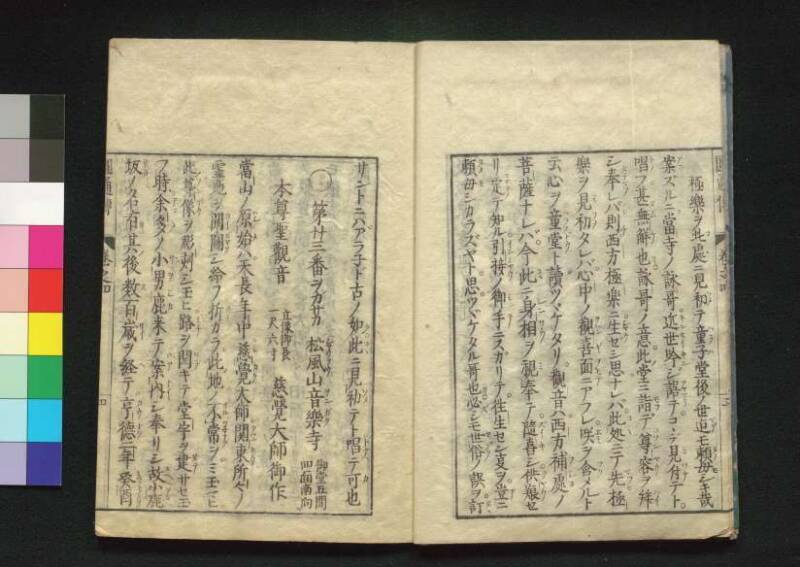 極樂ヲ此處ニ見初テ童子堂後ノ世迠モ頼毋シキ哉
案スルニ當寺ノ詠哥近世吟シ誤テコヽテ見付テト
唱フ甚無解也詠哥ノ意此堂ニ詣テ尊容ヲ拜
シ奉レバ則西方極樂ニ生セシ思ナレバ此処ニテ先極
樂ヲ見初タレバ心中ノ觀喜面ニアフレ咲ヲ含メルト
云心ヲ童堂ト讀ツヾケタリ觀音ハ西方補處ノ
菩薩ナレバ今此ニ身相ヲ視奉テ隨喜シ供娘セ
リ定テ知ル引接ノ御手ニスガリテ徃生セン夏ヲ豈ニ
頼毋シカラズヤト思ツヾケタル哥也必シモ世俗ノ誤ヲ訂
サントニハアラ子ド古ノ如此ニ見初テト唱テ可也
第廿三番ヲガサカ 松風山音樂寺 御堂五間四面南向
本尊聖觀音 立像御長一尺六寸 慈覺大師御作
當山ノ原始ハ天長年中慈覺大師關東所々ノ
靈地ヲ開闢シ給フ折カラ此地ノ不常ヲミ玉ヒ
此尊像ヲ彫刻シ玉ヒ路ヲ開キ堂宇ヲ建サセ玉
フ時余多ノ小男鹿来テ案内シ奉リシ故小鹿
坂ノ名有其後数百歳ヲ経テ亨德二年癸酉
圓通傳 卷之四